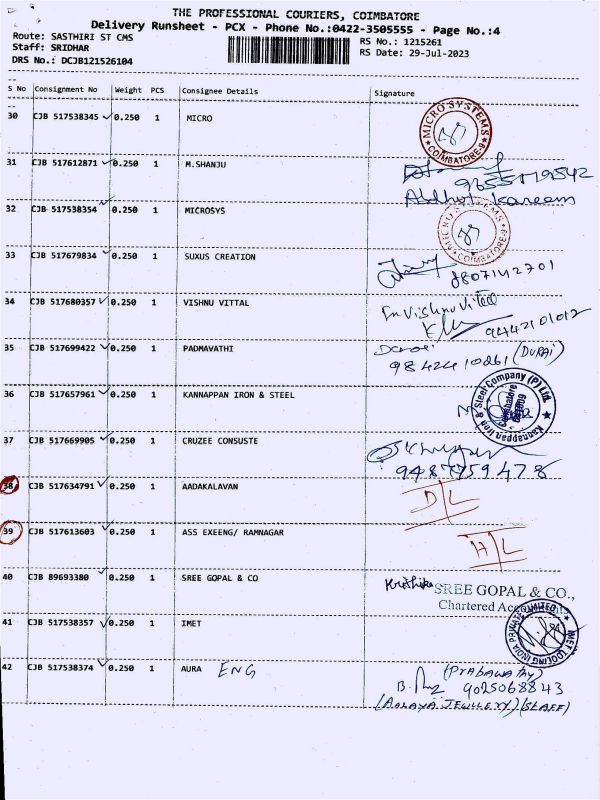 THE PROFESSIONAL COURIERS, COIMBATORE
Delivery Runsheet - PCX - Phone No.:0422-3505555 - Page No.:4
Route: SASTHIRI ST CMS
Staff: SRIDHAR
DRS No.: DCJB121526104
RS No.: 1215261
RS Date: 29-Jul-2023
S No Consignment No Weight PCS Consignee Details Signature
30 CJB 517538345 0.250 1 MICRO
MICRO SYSTEMS COIMBATORE-9
31 CJB 517612871 0.250 1 M.SHANJU
Abdhul kareem
32 CJB 517538354 0.250 1 MICROSYS
MICRO SYSTEMS COIMBATORE-9
33 CJB 517679834 0.250 1 SUXUS CREATION
8807142701
34 CJB 517680357 0.250 1 VISHNU VITTAL
9442101012
35 CJB 517699422 0.250 1 PADMAVATHI
Durai
9842410261 (DURAI)
36 CJB 517657961 0.250 1 KANNAPPAN IRON & STEEL
Kannappan Iron & Steel Company (P) Ltd.
37 CJB 517669905 0.250 1 CRUZEE CONSUSTE
9487759478
38 CJB 517634791 0.250 1 AADAKALAVAN
D/L
39 CJB 517613603 0.250 1 ASS EXEENG/ RAMNAGAR
H/L
40 CJB 89693380 0.250 1 SREE GOPAL & CO
Krithika SREE GOPAL & CO.,
Chartered Accountants
41 CJB 517538357 0.250 1 IMET
IMET TOOLING INDIA PRIVATE LIMITED
42 CJB 517538374 0.250 1 AURA ENG
(Prabawathy)
9025068843
(AALAYA JEWLLEXY) (STAFF)